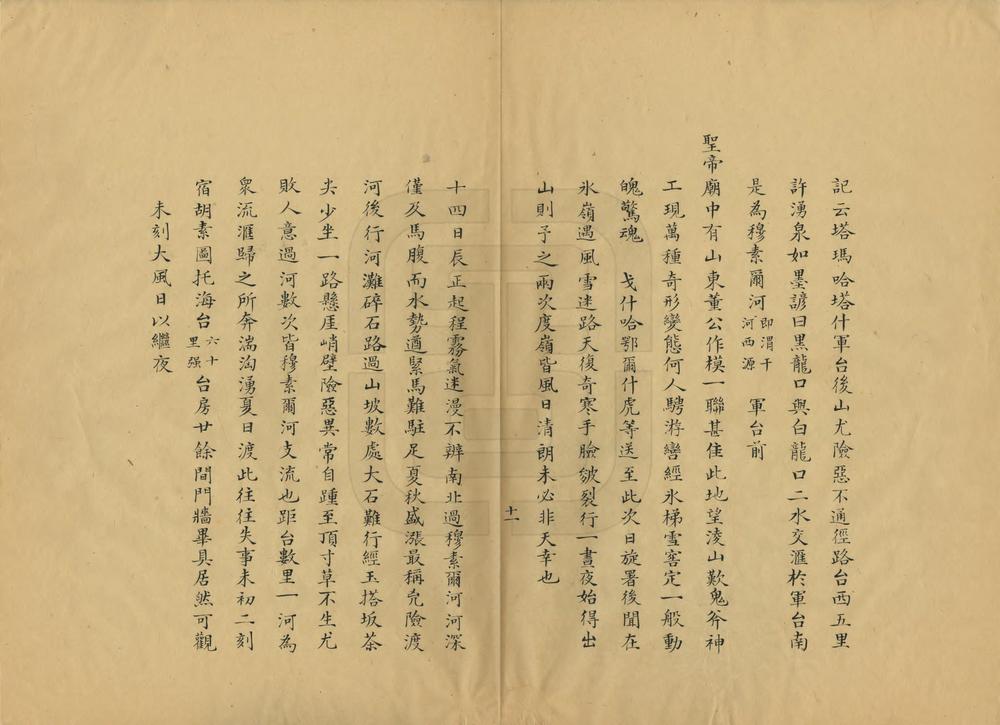 記云塔瑪哈塔什軍台後山尤險惡不通徑路台西五里
許湧泉如墨諺曰黑龍口與白龍口二水交滙於軍台南
是為穆素爾河即渭干河西源 軍台前
聖帝廟中有山東董公作模一聯甚佳此地望淩山歎鬼斧神
工現萬種奇形變態何人騁游轡經氷梯雪窖定一般動
魄驚魂 戈什哈鄂爾什虎等送至此次日旋署後聞在
氷嶺遇風雪迷路天復奇寒手臉皴裂行一晝夜始得出
山則予之兩次度嶺皆風日清朗未必非天幸也
十一
十四日辰正起程霧氣迷漫不辨南北過穆素爾河河深
僅及馬腹而水勢遒緊馬難駐足夏秋盛漲最稱危險渡
河後行河灘碎石路過山坡數處大石難行經玉搭坂茶
尖少坐一路懸厓峭壁險惡異常自踵至頂寸草不生尤
敗人意過河數次皆穆素爾河支流也距台數里一河為
衆流滙歸之所奔湍洶湧夏日渡此往往失事未初二刻
宿胡素圖托海台六十里强台房廿餘間門牆畢具居然可觀
未刻大風日以繼夜